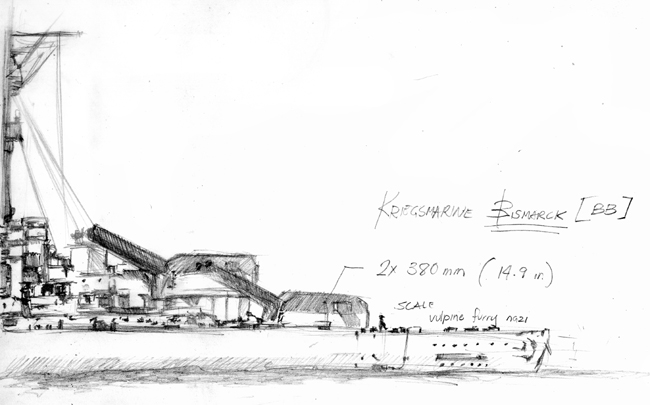 KRIEGSMARINE BISMARCK [BB]
2x 380mm (14.9 in.)
SCALE
vulpine furry nazi